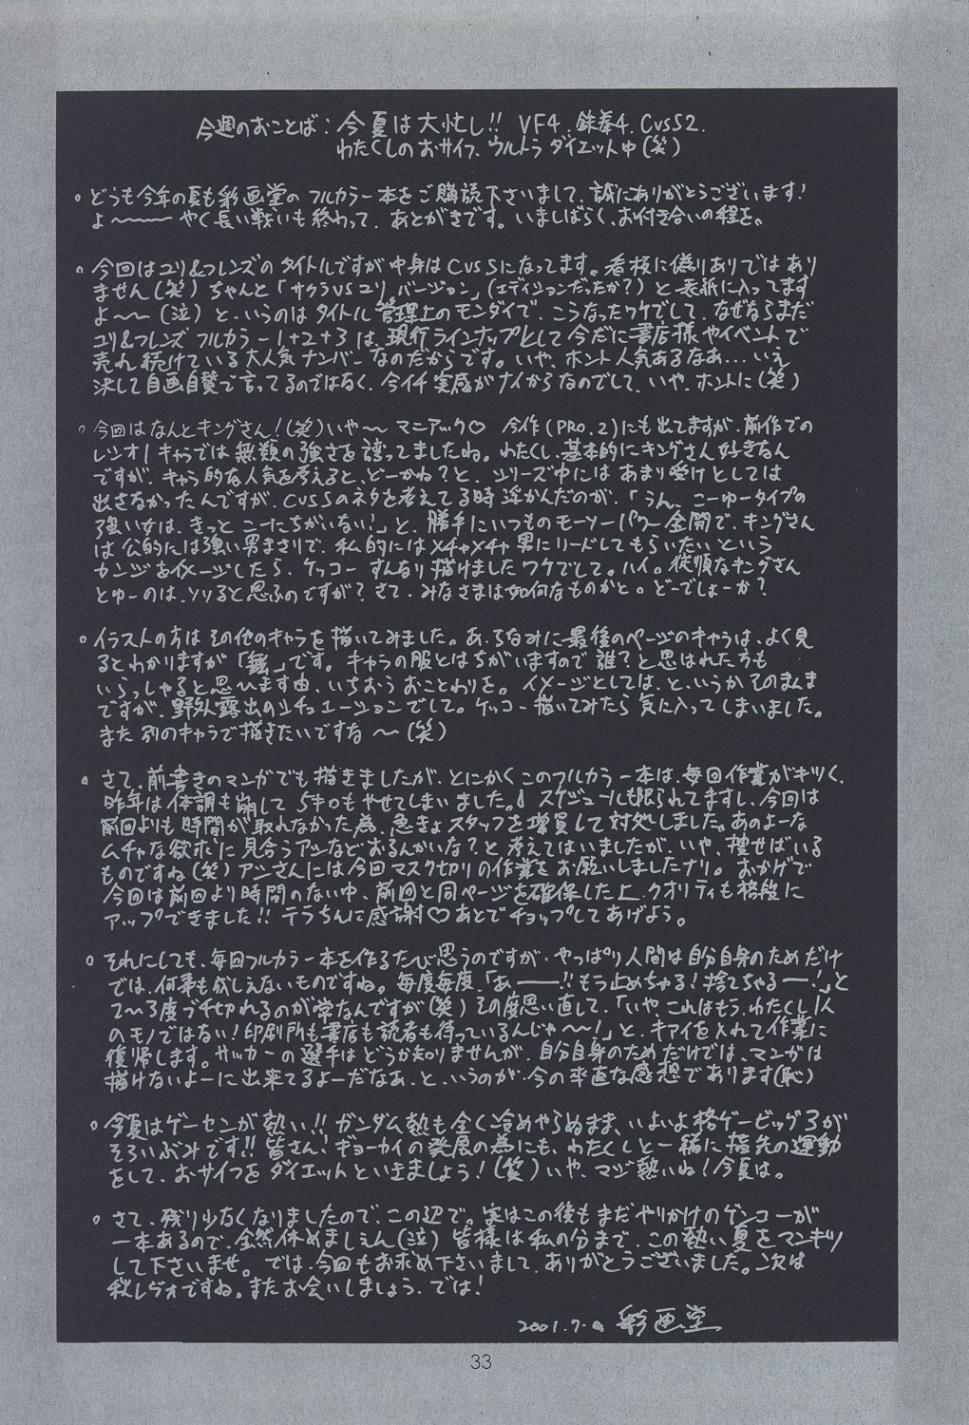 今週のおことば：今夏は大忙し!! VF4、鉄拳4、CVSS2.
わたくしのおサイフ、ウルトラダイエット中(笑)
。どうも今年の夏も彩画堂のフルカラー本をご購読下さいまして、誠にありがとうございます!
よ〜〜〜やく長い戦いも終わって、あとがきです。いましばらく、お付き合いの程を。
。今回はユリ&フレンズのタイトルですが中身はCVSSになってます。看板に偽りありではあり
ません(笑) ちゃんと「サクラVSユリ バージョン」(エディションだったか?)と表紙に入ってます
よ〜〜(泣) というのはタイトル管理上のモンダイで、こうなったワケでして、なぜならまだ
ユリ&フレンズフルカラー1+2+3は、現行ラインナップとして今だに書店様やイベントで
売れ続けている大人気ナンバーなのだからです。いや、ホント人気あるなあ…いえ
決して自画自賛で言ってるのではなく、今イチ実感がナイからなのでして、いや、ホントに(笑)
。今回はなんとキングさん!(笑)いや〜 マニアック♡ 今作(PRO.2)にも出てますが、前作での
レシオ1キャラでは無類の強さを誇ってましたね。わたくし、基本的にキングさん好きなん
ですが、キャラ的な人気を考えると、どーかね?と、シリーズ中にはあまり受けとしては
出さなかったんですが、CVSSのネタを考えてる時浮かんだのが、「うん、こーゆータイプの
強い女は、きっとこーにちがいない!」と、勝手にいつものモーソーパワー全開で、キングさん
は公的には強い男まさりで、私的にはメチャメチャ男にリードしてもらいたいという
カンジをイメージしたら、ケッコーすんなり描けましたワケでして。ハイ。従順なキングさん
とゆーのは、ソソると思ふのですが?さて、みなさまは如何なものかと。どーでしょーか?
。イラストの方はその他のキャラを描いてみました。あ、ちなみに最後のページのキャラは、よく見
るとわかりますが「舞」です。キャラの服とはちがいますので誰?と思はれた方も
いらっしゃると思ひます由、いちおうおことわりを。イメージとしては、と、いうかそのまんま
ですが、野外露出のシチュエーションでして。ケッコー描いてみたら気に入ってしまいました。
また別のキャラで描きたいですな〜(笑)
。さて、前書きのマンガでも描きましたが、とにかくこのフルカラー本は、毎回作業がキツく、
昨年は体調も崩して5キロもやせてしまいました。スケジュールも限られてますし、今回は
前回よりも時間が取れなかった為、急きょスタッフを増員して対処しました。あのよーな
ムチャな欲求に見合うアシなどおるんかいな?と考えてはいましたが、いや、捜せばいる
ものですね(笑)アシさんには今回マスク切りの作業をお願いしましたナリ。おかげで
今回は前回より時間のない中、前回と同ページを確保した上、クオリティも格段に
アップできました!! テラちんに感謝♡あとでチョップしてあげよう。
。それにしても、毎回フルカラー本を作るたび思うのですが、やっぱり人間は自分自身のためだけ
では、何事も成しえないものですね。毎度毎度、「あ———!!もう止めちゃる!捨てちゃる——!」と
2〜3度ブチ切れるのが常なんですが(笑)その度思い直して、「いや、これはもう、わたくし1人
のモノではない!印刷所も書店も読者も待っているんじゃ〜〜!」と、キアイを入れて作業に
復帰します。サッカーの選手はどうか知りませんが、自分自身のためだけでは、マンガは
描けないよーに出来てるよーだなあ、と、いうのが、今の率直な感想であります(恥)
。今夏はゲーセンが熱い!! ガンダム熱も全く冷めやらぬまま、いよいよ格ゲービッグ3が
そろいぶみです!! 皆さん!ギョーカイの発展の為にも、わたくしと一緒に指先の運動
をして、おサイフをダイエットといきましょう!(笑)いや、マジ熱いね!今夏は。
。さて、残り少なくなりましたので、この辺で。実はこの後もまだやりかけのゲンコーが
一本あるので、全然休めましぇん(泣) 皆様は私の分まで、この熱い夏をマンキツ
して下さいませ。では、今回もお求め下さいまして、ありがとうございました。次は
秋レヴォですね。またお会いしましょう、では!
2001.7. 彩画堂
33